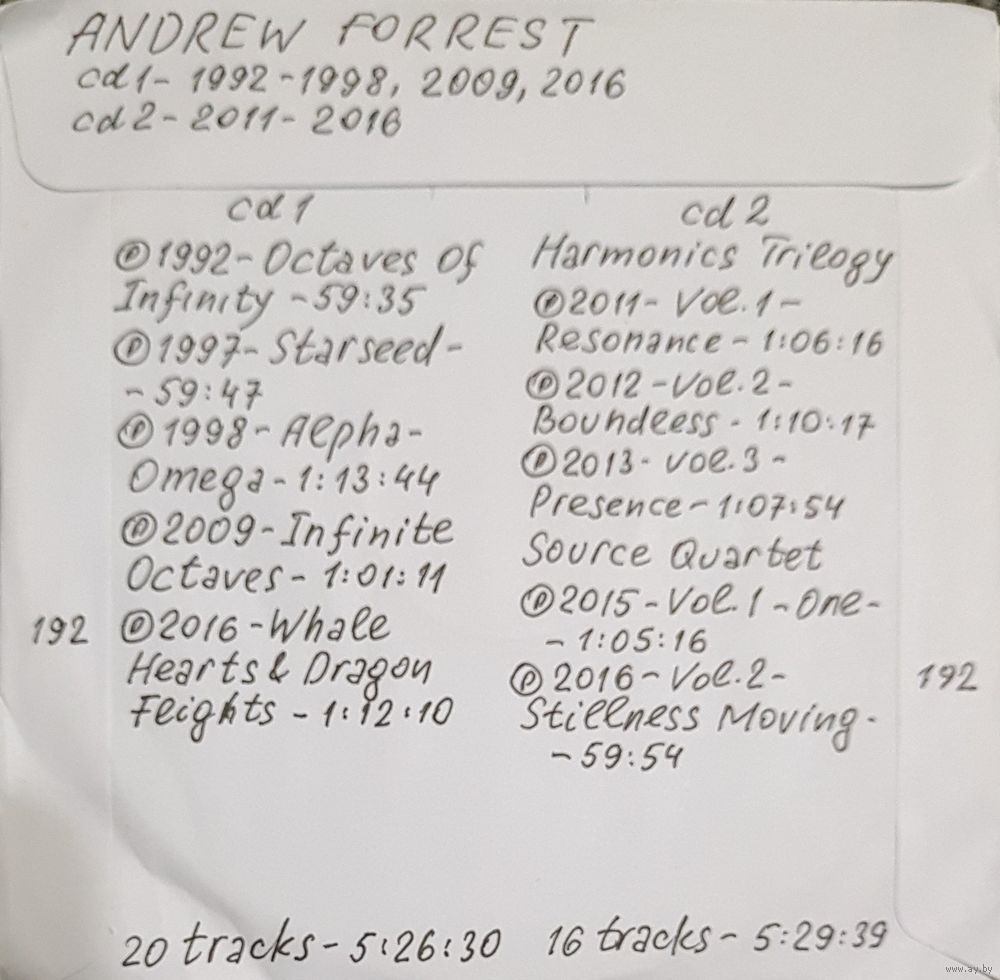 ANDREW FORREST
cd 1 - 1992 - 1998, 2009, 2016
cd 2 - 2011 - 2016
cd 1
℗ 1992 - Octaves of
Infinity - 59:35
℗ 1997 - Starseed -
- 59:47
℗ 1998 - Alpha -
Omega - 1:13:44
℗ 2009 - Infinite
Octaves - 1:01:11
192
℗ 2016 - Whale
Hearts & Dragon
Flights - 1:12:10
20 tracks - 5:26:30
cd 2
Harmonics Trilogy
℗ 2011 - Vol. 1 -
Resonance - 1:06:16
℗ 2012 - Vol. 2 -
Boundless - 1:10:17
℗ 2013 - Vol. 3 -
Presence - 1:07:54
Source Quartet
℗ 2015 - Vol. 1 - One -
- 1:05:16
℗ 2016 - Vol. 2 -
192
Stillness Moving -
- 59:54
16 tracks - 5:29:39
www.ay.by